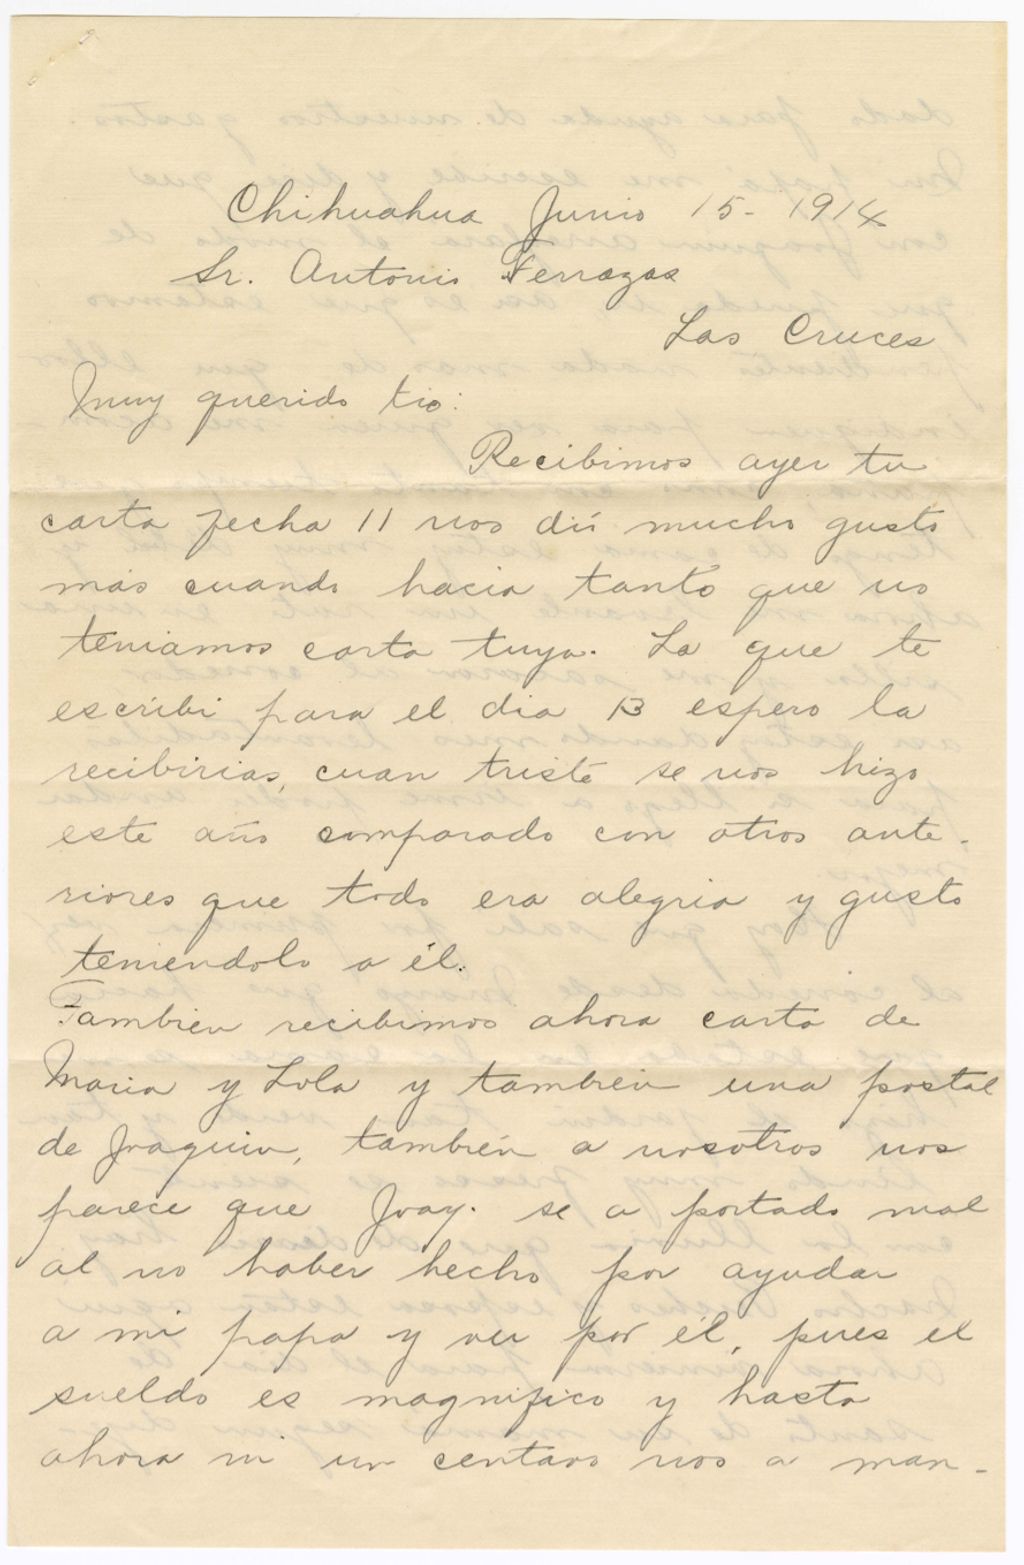 Chihuahua Junio 15- 1914
Sr. Antonio Terrazas
Las Cruces
Muy querido tio:
Recibimos ayer tu
carta fecha 11 nos dió mucho gusto
más cuando hacia tanto que no
teniamos carta tuya. La que te
escribi para el dia 13 espero la
recibirias, cuan triste se nos hizo
este año comparado con otros ante-
riores que todo era alegria y gusto
teniendolo a él.
Tambien recibimos ahora carta de
Maria y Lola y también una postal
de Joaquin, también a nosotros nos
parece que Joaq. se a portado mal
al no haber hecho por ayudar
a mi papa y ver por él, pues el
sueldo es magnifico y hasta
ahora ni un centavo nos a man-